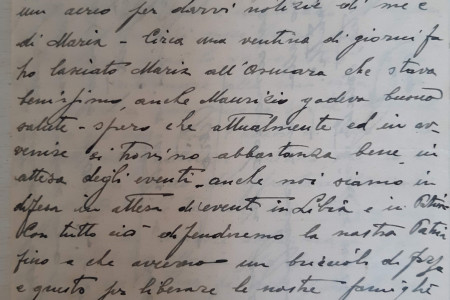 un aereo per darvi notizie di me e
di Maria - Circa una ventina di giorni fa
ho lasciato Maria all'Asmara che stava
benissimo, anche Maurizio godeva buona
salute - spero che attualmente ed in av-
venire si trovino abbastanza bene in
attesa degli eventi - anche noi siamo in
difesa in attesa di eventi in Libia e in
Con tutto ciò difenderemo la nostra Patria
fino a che avremo un briciolo di forza
e questo per liberare le nostre famiglie